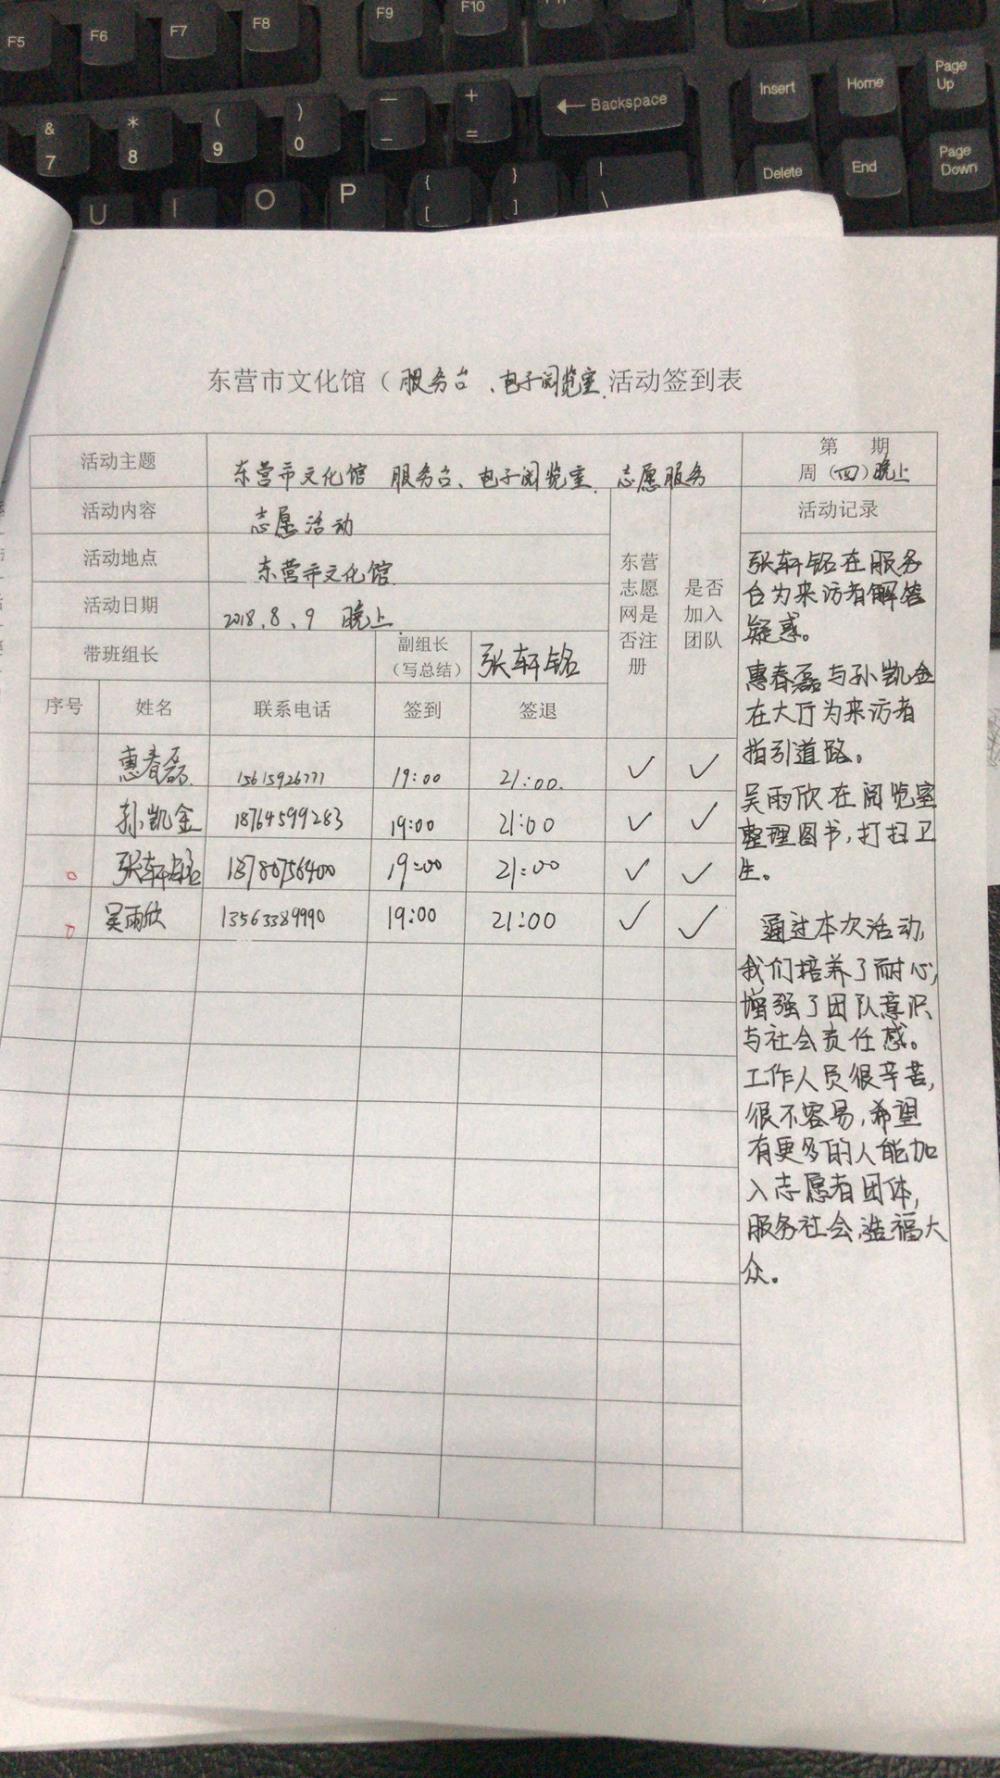 F5 F6 F7 F8 F9 F10
& 7 * 8 ( 9 ) 0 — - + = ← Backspace Insert Home Page Up
U I O P { [ } ] | \ Delete End Page Down
东营市文化馆（服务台、电子阅览室 活动签到表
活动主题 东营市文化馆 服务台、电子阅览室 志愿服务 第 期
周（四）晚上
活动内容 志愿活动 东营志愿网是否注册 是否加入团队 活动记录
活动地点 东营市文化馆
活动日期 2018.8.9 晚上
带班组长 副组长（写总结） 张轩铭
序号 姓名 联系电话 签到 签退
惠春磊 15615926777 19:00 21:00. ✓ ✓
孙凯金 18764599283 19:00 21:00 ✓ ✓
张轩铭 19:00 21:00 ✓ ✓
吴雨欣 13563389990 19:00 21:00 ✓ ✓
张轩铭在服务
台为来访者解答
疑惑。
惠春磊与孙凯金
在大厅为来访者
指引道路。
吴雨欣在阅览室
整理图书,打扫卫
生。
通过本次活动,
我们培养了耐心,
增强了团队意识
与社会责任感。
工作人员很辛苦,
很不容易,希望
有更多的人能加
入志愿者团体,
服务社会,造福大
众。